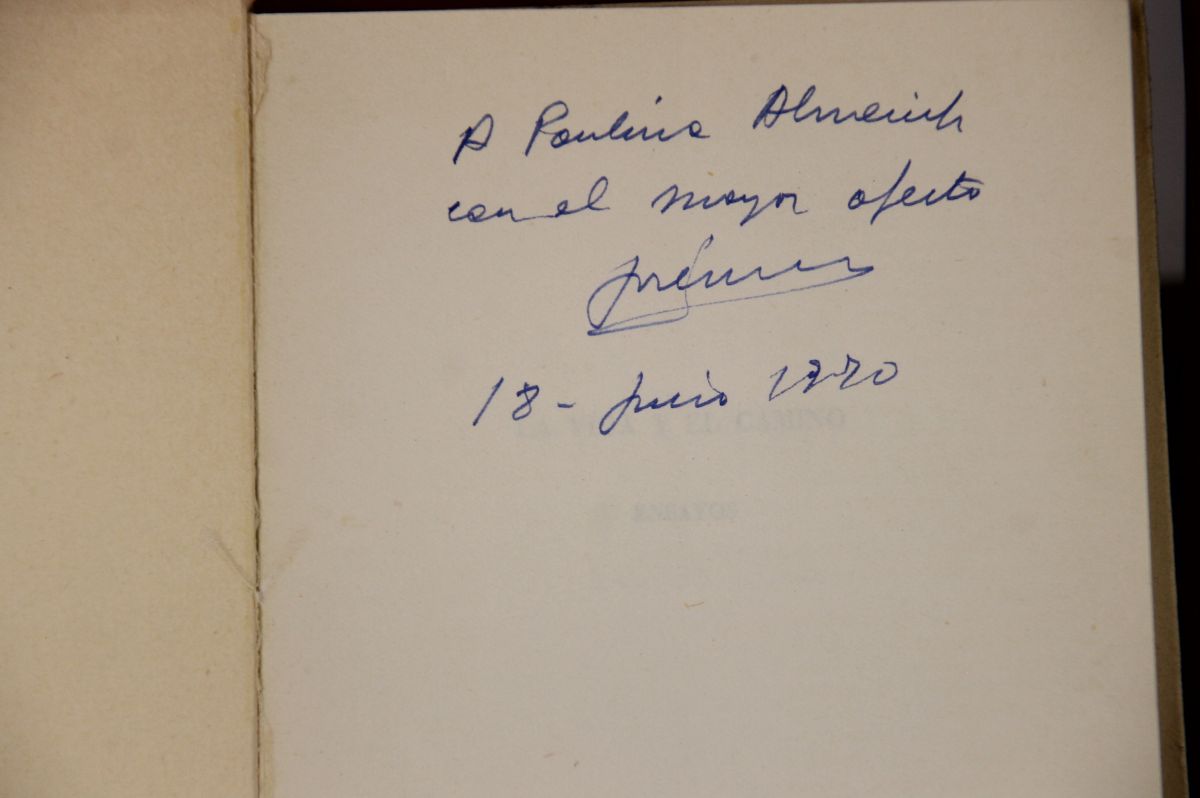 A Paulina Almerich
con el mayor afecto
18 - Junio 1970
LA VIDA Y EL CAMINO
ENSAYOS